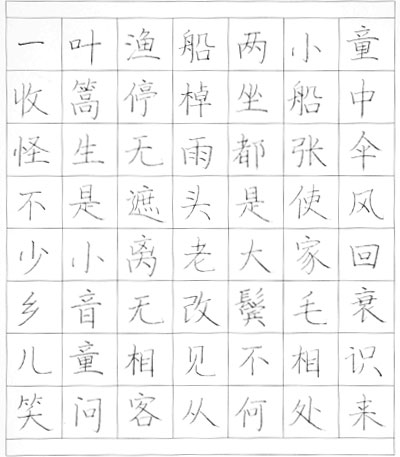 一叶渔船两小童
收篙停棹坐船中
怪生无雨都张伞
不是遮头是使风
少小离老大家回
乡音无改鬓毛衰
儿童相见不相识
笑问客从何处来